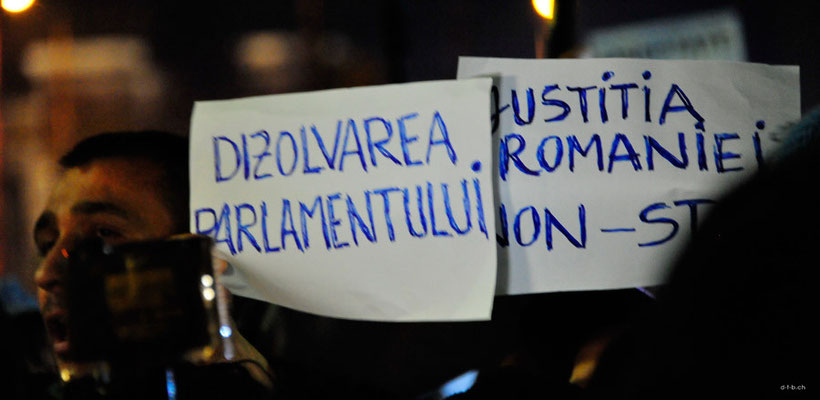 DIZOLVAREA
PARLAMENTULUI
JUSTITIA
ROMANIEI
NON-ST
d-f-b.ch